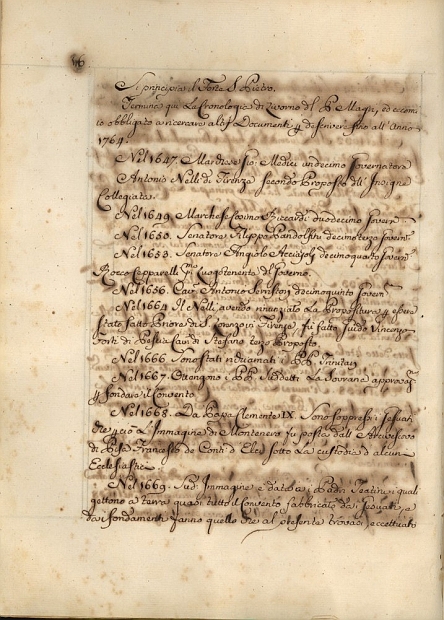 Si principia il Forte S. Pietro.
Termina qui La Cronologia di Livorno del P. Magri, ed eccomi
to obbligato a ricercare altri Documenti, p descrivere fino all' Anno
1764.
Nel 1647. Mar Medici undecimo Governatore
Antonio Nelli di Firenza secondo Proposto dell' Insigne
Collegiata.
Nel 1649. Marchese Cosimo Riccardi duodecimo Govern
Nel 1650. Senatore Filippo Pandolfini decimoterzo Govern
Nel 1653. Senatore Angiolo Acciajoli decimoquarto Govern
Rocco Cepparelli Luogotenente del Governo.
Nel 1656. Cav. Antonio Serristori decimoquinto Govern
Nel 1664. Il Nelli avendo rinunziato La Propositura p essere
stato fatto Priore di S. Lorenzo in Firenza, fu fatto Guido Vincenzo
Forti di Pescia Cav. di S. Stefano terzo Proposto.
Nel 1666. Sono stati richiamati i PP. Trinitari
Nel 1667. Ottengono i PP. La Sovrana approvaz
p fondare il Convento.
Nel 1668. Da Papa Clemente IX. Sono soppressi i Gesuati,
che perciò L'Immagine di Montenera fu posta dall' Arcivescovo
di Pisa Francesco de Conti d' Elci sotto La custodia d' alcuni
Ecclesiastici.
Nel 1669. Sud. Immagine è data ai Padri Teatini, i quali
gettono a terra quasi tutto il Convento fabbricato da i Gesuati, e
da i fondamenti fanno quello che al presente trovasi, eccettuato